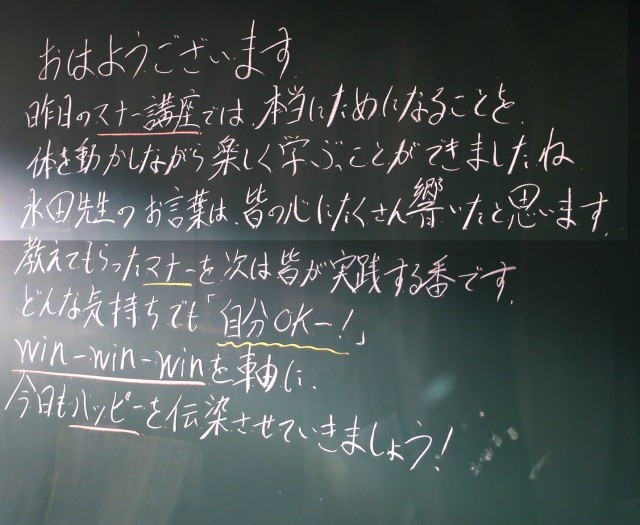 おはようございます
昨日のマナー講座では、本当にためになることを、
体を動かしながら楽しく学ぶことができましたね
永田先生のお言葉は、皆の心にたくさん響いたと思います。
教えてもらったマナーを次は皆が実践する番です。
どんな気持ちでも「自分OKー!」
win-win-winを軸に、
今日もハッピーを伝染させていきましょう!